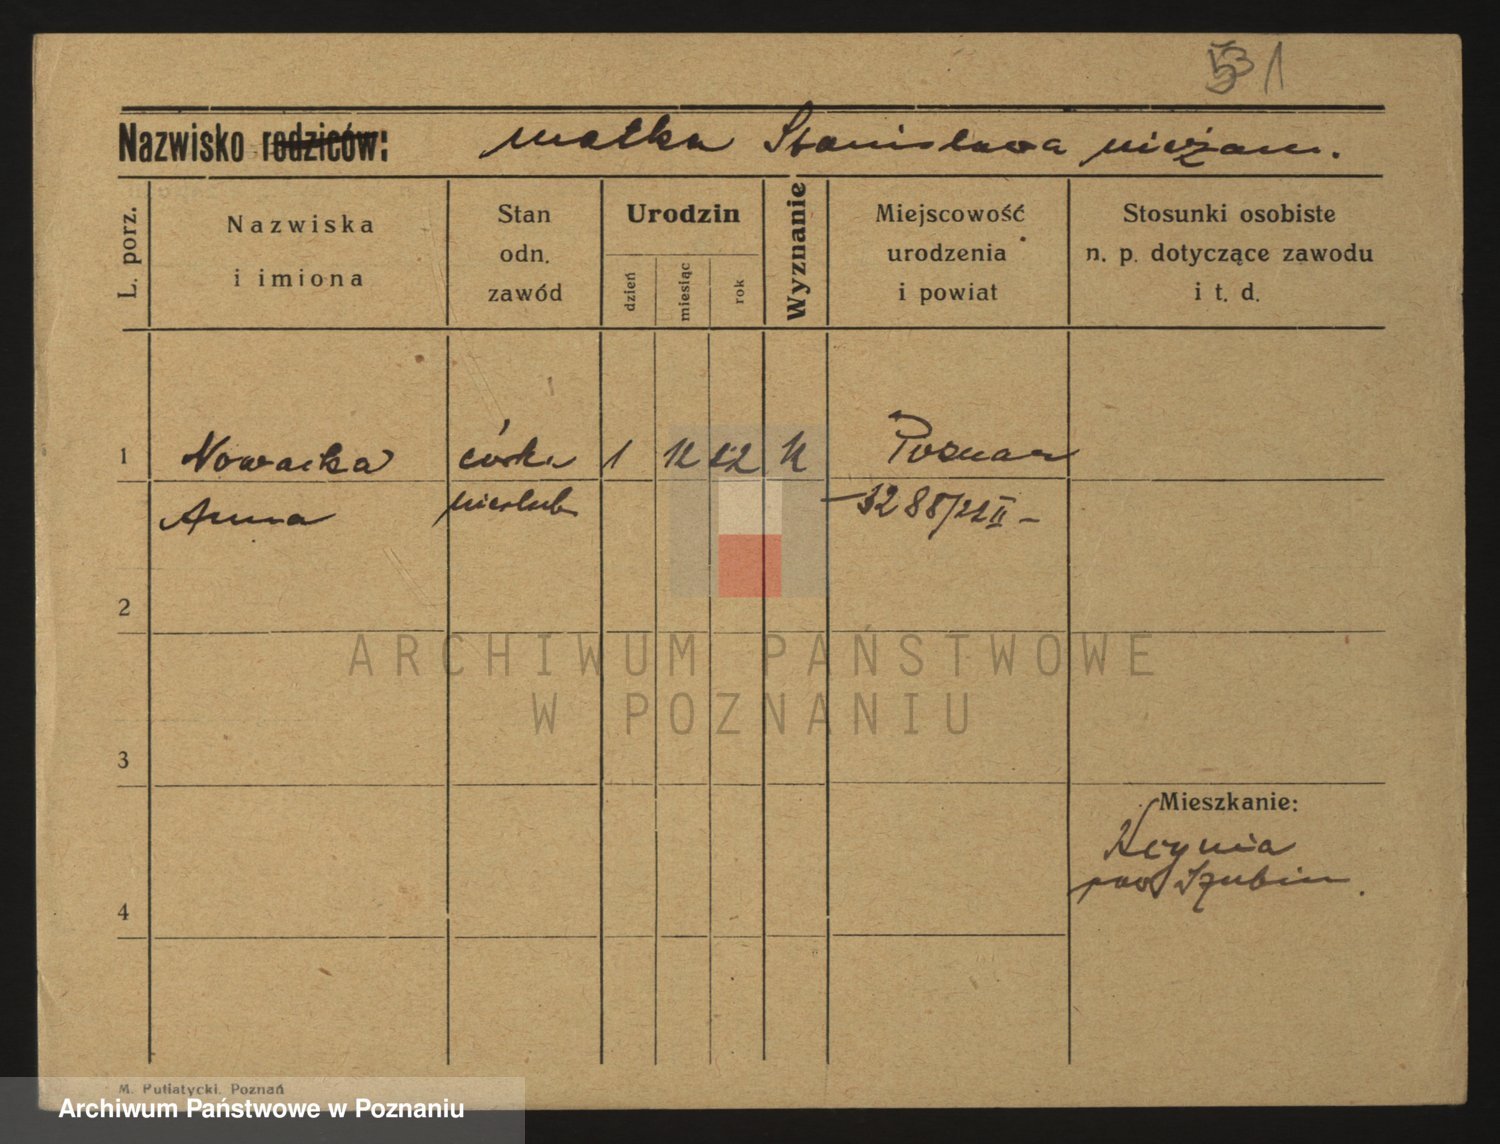 531
Nazwisko rodziców: matka Stanisława niezam.
L. porz.
Nazwiska
i imiona
Stan
odn.
zawód
Urodzin
dzień
miesiąc
rok
Wyznanie
Miejscowość
urodzenia
i powiat
Stosunki osobiste
n. p. dotyczące zawodu
i t. d.
1 Nowacka córka 1 12 22 k Poznań
Anna nieślub 3288/22 II
2
3
4
Mieszkanie:
Kcynia
pow Szubin.
ARCHIWUM PAŃSTWOWE
W POZNANIU
M. Putiatycki, Poznań
Archiwum Państwowe w Poznaniu